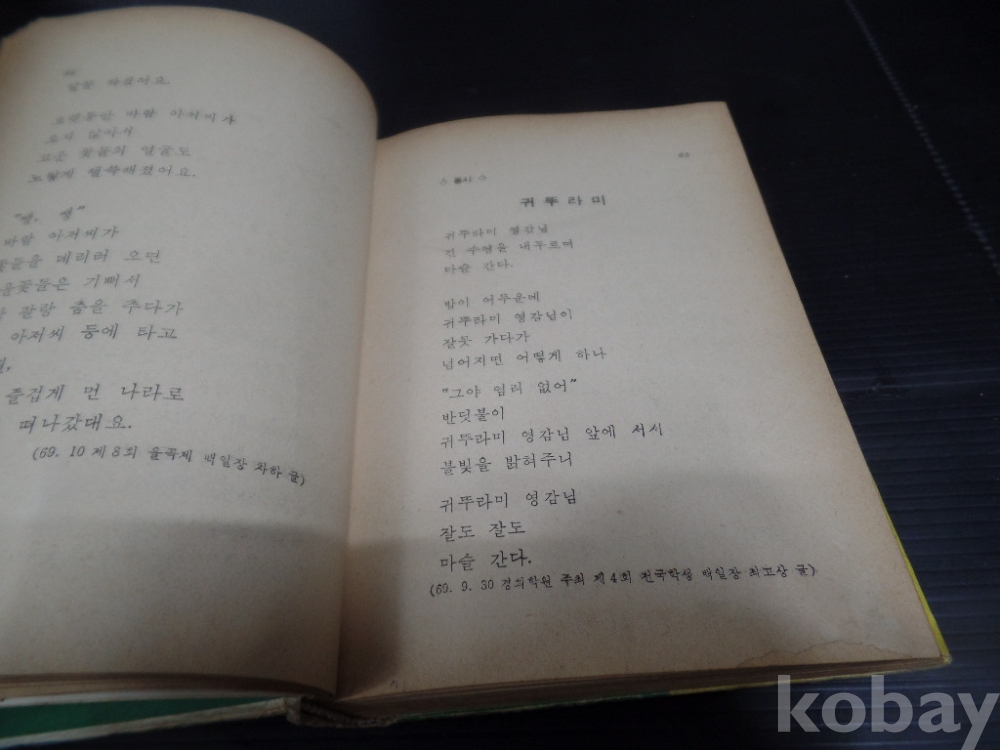 얼굴 하였어요.
오랫동안 바람 아저씨가
오지 않아서
고운 꽃들의 얼굴도
노랗게 핼쑥해졌어요.
"쌩, 쌩"
바람 아저씨가
꽃들을 데리러 오면
꽃들은 기뻐서
팔랑 춤을 추다가
아저씨 등에 타고
즐겁게 먼 나라로
떠나갔대요.
(69. 10 제 8회 율곡제 백일장 차하 글)
63
◇ 동시 ◇
귀뚜라미
귀뚜라미 영감님
긴 수염을 내두르며
마슬 간다.
밤이 어두운데
귀뚜라미 영감님이
잘못 가다가
넘어지면 어떻게 하나
"그야 염려 없어"
반딧불이
귀뚜라미 영감님 앞에 서서
불빛을 밝혀주니
귀뚜라미 영감님
잘도 잘도
마슬 간다.
(69. 9. 30 경희학원 주최 제 4회 전국학생 백일장 최고상 글)
kobay